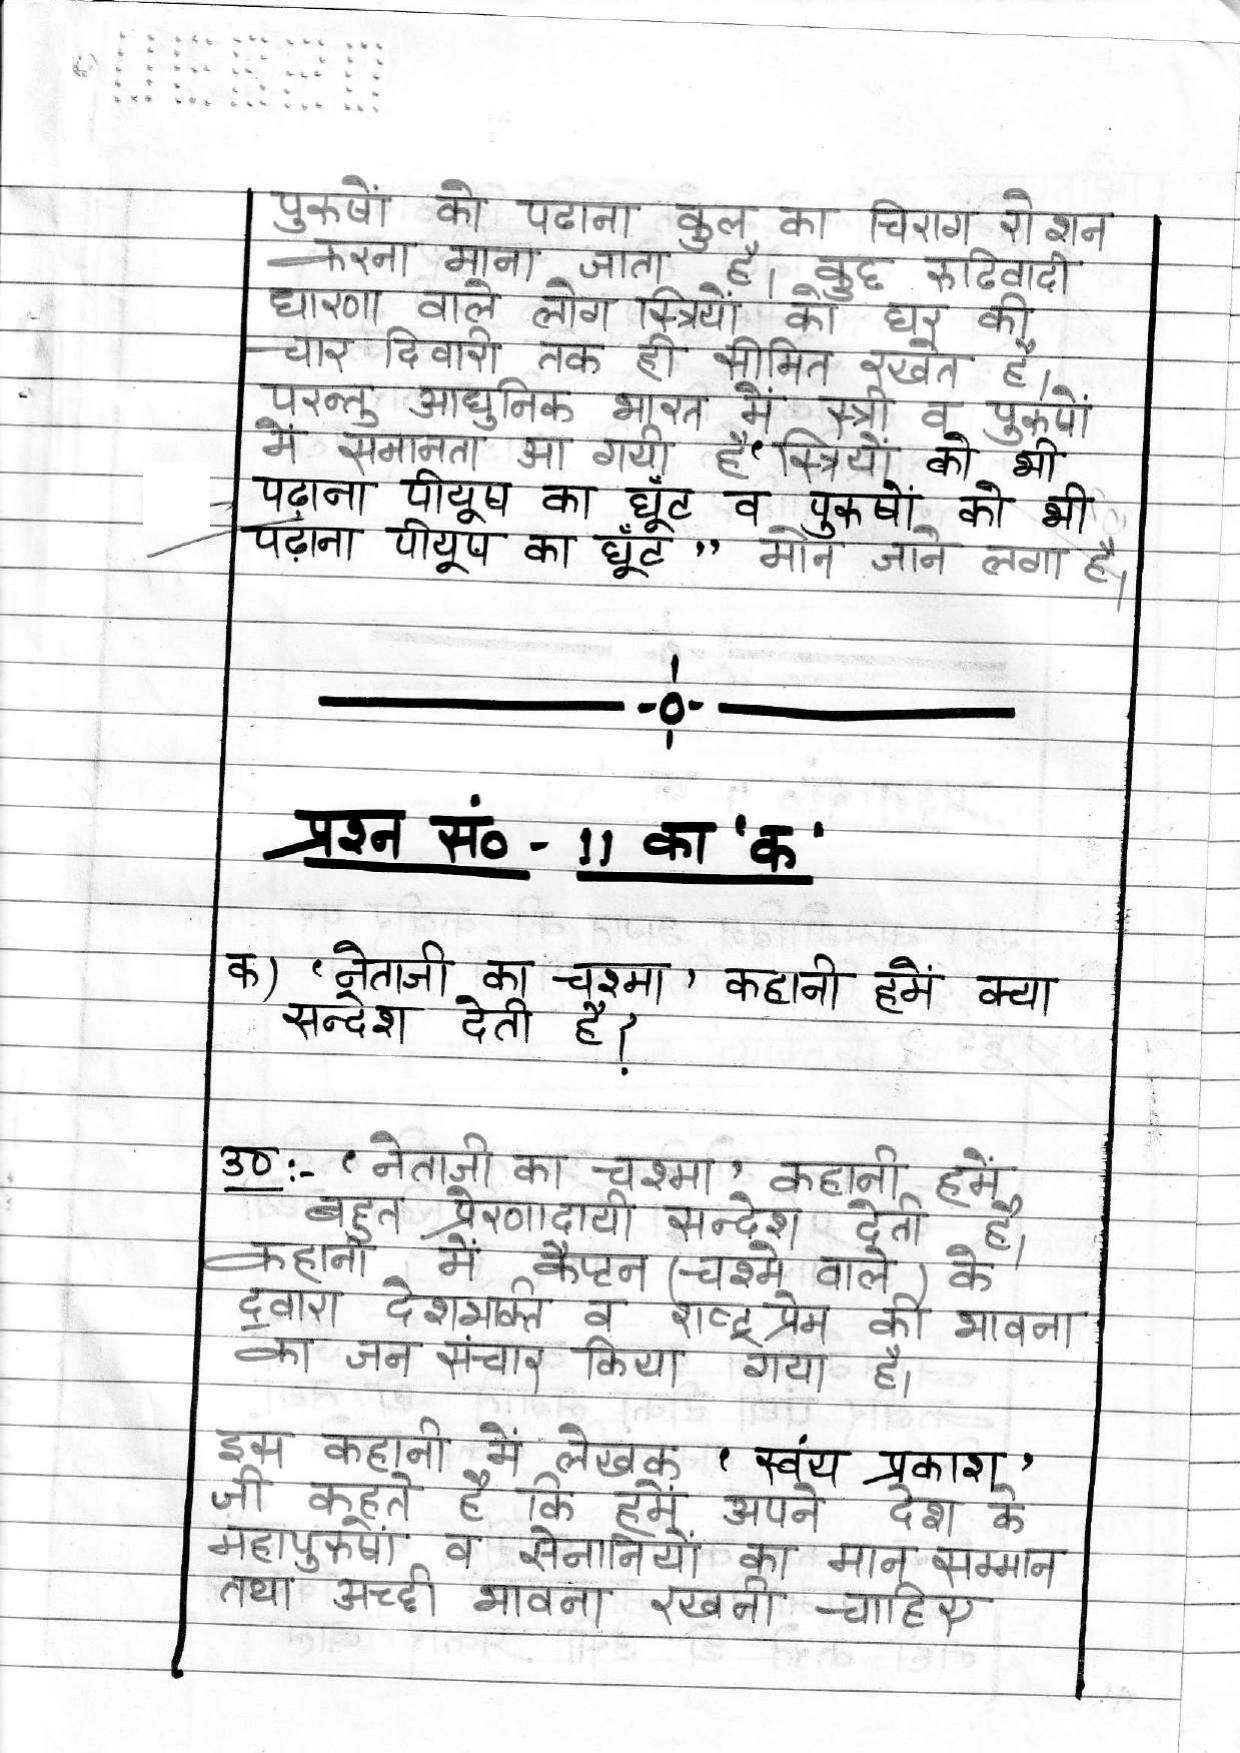 पुरूषों को पढाना कुल का चिराग रोशन
करना माना जाता है। कुछ रूढिवादी
धारणा वाले लोग स्त्रियों को घर की
चार दिवारी तक ही सीमित रखते है।
परन्तु आधुनिक भारत में स्त्री व पुरूषों
में समानता आ गयी है 'स्त्रियों को भी
पढ़ाना पीयूष का घूँट व पुरूषों को भी
पढ़ाना पीयूष का घूँट" माने जाने लगा है।
प्रश्न सं० - 11 का 'क'
क) 'नेताजी का चश्मा' कहानी हमें क्या
सन्देश देती है?
उ० :- 'नेताजी का चश्मा' कहानी हमें
बहुत प्रेरणादायी सन्देश देती है।
कहानी में कैप्टन (चश्मे वाले) के
द्वारा देशभक्ति व राष्ट्रप्रेम की भावना
का जन संचार किया गया है।
इस कहानी में लेखक 'स्वंय प्रकाश'
जी कहते है कि हमें अपने देश के
महापुरूषों व सेनानियों का मान सम्मान
तथा अच्छी भावना रखनी चाहिए